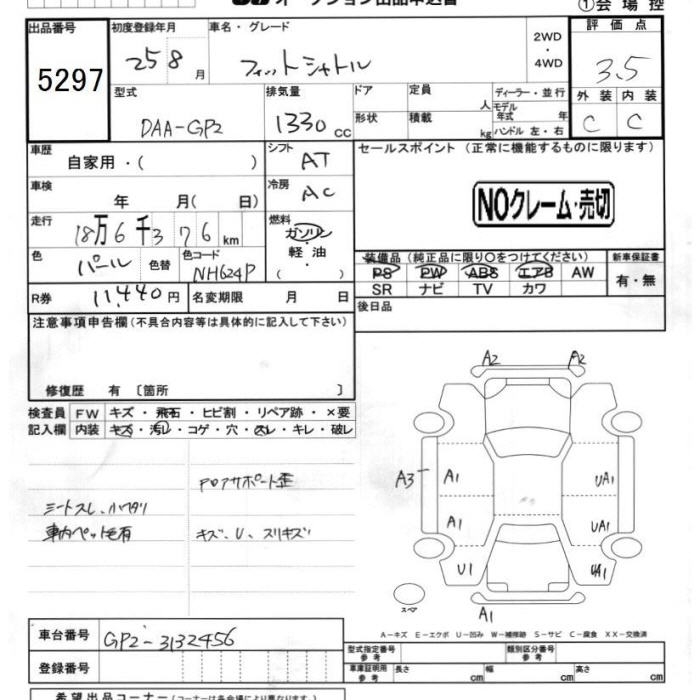 オークション出品申込書
①会場控
出品番号
5297
初度登録年月
25 8 月
車名・グレード
フィットシャトル
2WD
・
4WD
評価点
3.5
型式
DAA-GP2
排気量
1330 cc
ドア
形状
定員
人
積載
kg
ディーラー・並行
モデル
年式
年
ハンドル 左・右
外装 内装
C C
車歴
自家用・( )
シフト
AT
セールスポイント (正常に機能するものに限ります)
NOクレーム・売切
車検
年 月( 日)
冷房
AC
走行
18万6千376 km
燃料
ガソリン
軽油
( ・ )
色
パール
色替
色コード
NH624P
装備品(純正品に限り○をつけてください)
PS PW ABS エアB AW
SR ナビ TV カワ
新車保証書
有・無
R券
11,440円
名変期限 月 日
後日品
注意事項申告欄(不具合内容等は具体的に記入して下さい)
修復歴 有 〔箇所 〕
検査員
記入欄
FW キズ・飛石・ヒビ割・リペア跡・×要
内装 キズ・汚レ・コゲ・穴・スレ・キレ・破レ
シートスレ、ハワタリ
車内ペット毛有
キズ、U、スリキズ
A2 A2
A3
A1
UA1
A1
UA1
U1
UA1
スペア
A1
A-キズ E-エクボ U-凹み W-補修跡 S-サビ C-腐食 XX-交換済
車台番号
GP2-3132456
登録番号
型式指定番号
参考
類別区分番号
参考
車庫証明用
参考
長さ cm
幅 cm
高さ cm
希望出品コーナー(コーナー名は各会場により異なります)